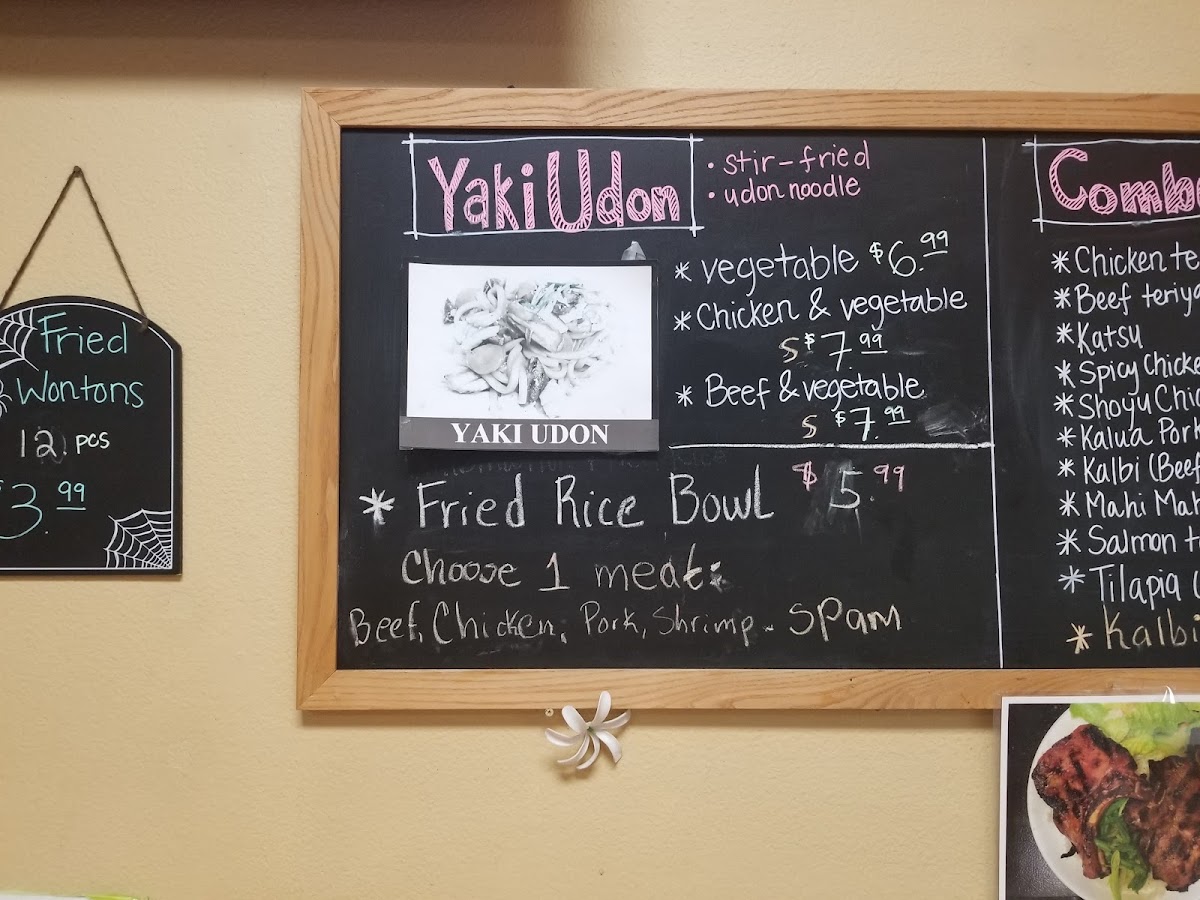 Fried
Wontons
12 pcs
$3.99
Yaki Udon
• stir-fried
• udon noodle
* vegetable $6.99
* Chicken & vegetable
S $7.99
* Beef & vegetable
S $7.99
YAKI UDON
* Fried Rice Bowl $5.99
Choose 1 meat:
Beef, Chicken, Pork, Shrimp - SPAM
* Chicken
* Beef
* Katsu
* Spicy
* Shoyu
* Kalua Pork
* Kalbi (Beef
* Mahi
* Salmon
* Tilapia
* Kalbi